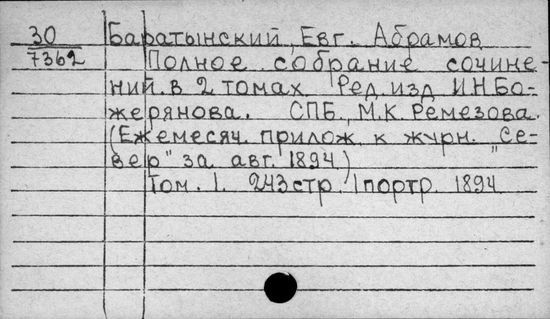 30 Баратынский, Евг. Абрамов
7362 Полное собрание сочине-
ний в 2 томах. Ред. изд И.Н.Бо-
жерянова. СПБ, М.К. Ремезова.
(Ежемесяч. прилож. к журн. "Се-
вер" за авг. 1894.)
Том. 1. 243 стр. 1 портр. 1894